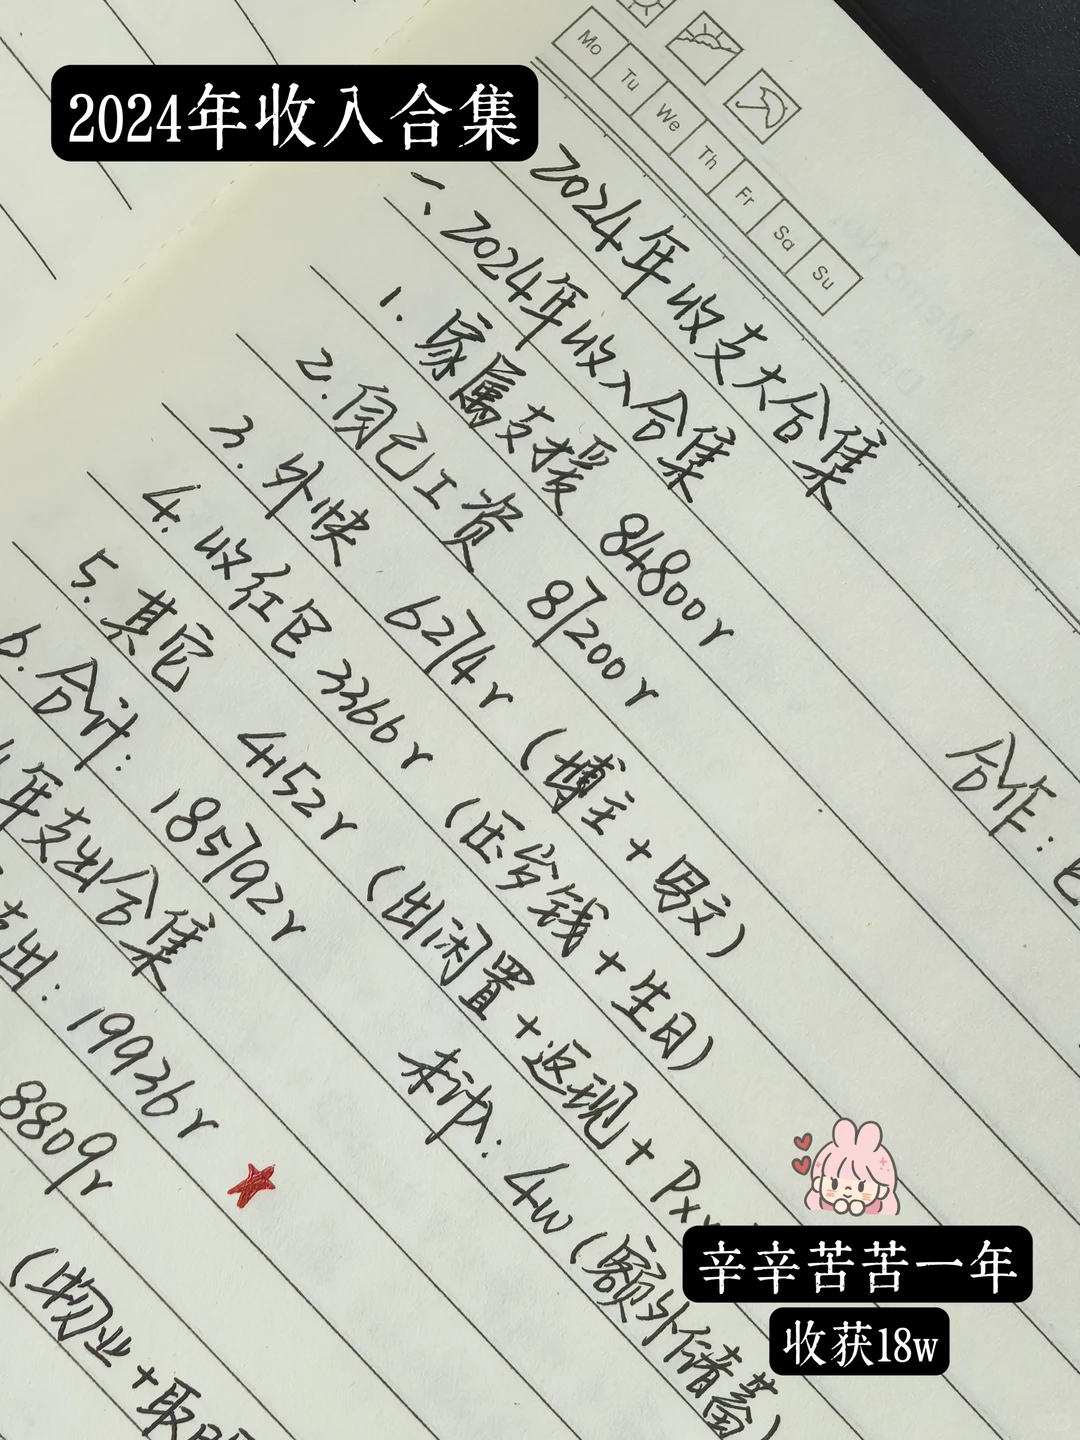 2024年收入合集
Mo Tu We Th Fr Sa Su
2024年收支大合集
一、2024年收入合集
1. 家属支援 84800r
2. 自己工资 87200r
合作:
3. 外快 6274r (博主+男文)
4. 收红包 3366r (压岁钱+生日)
5. 其它 4152r (出闲置+返现+Pxx
6. 合计: 185792r
未计入: 4w (额外储蓄)
年支出合集
支出: 19936r
8809r
(物业+取
辛辛苦苦一年
收获18w